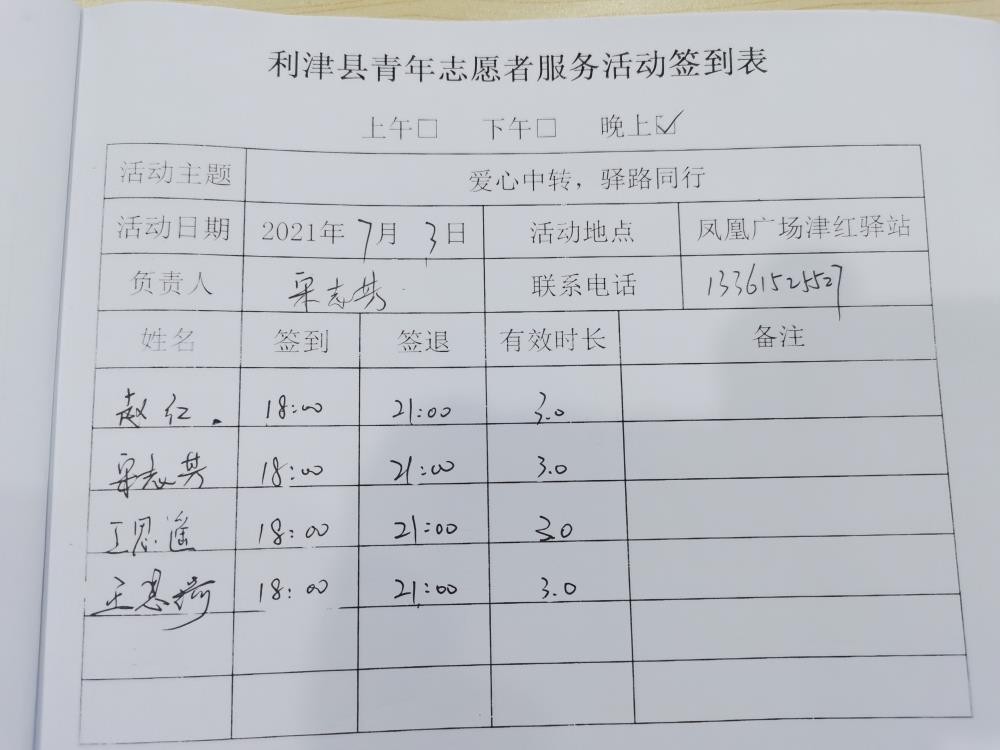 利津县青年志愿者服务活动签到表
上午□ 下午□ 晚上☑
活动主题 爱心中转，驿路同行
活动日期 2021年7月3日 活动地点 凤凰广场津红驿站
负责人 宋志芸 联系电话 13361525527
姓名 签到 签退 有效时长 备注
赵红. 18:00 21:00 3.0
宋志芸 18:00 21:00 3.0
王恩 18:00 21:00 3.0
王恩 18:00 21:00 3.0